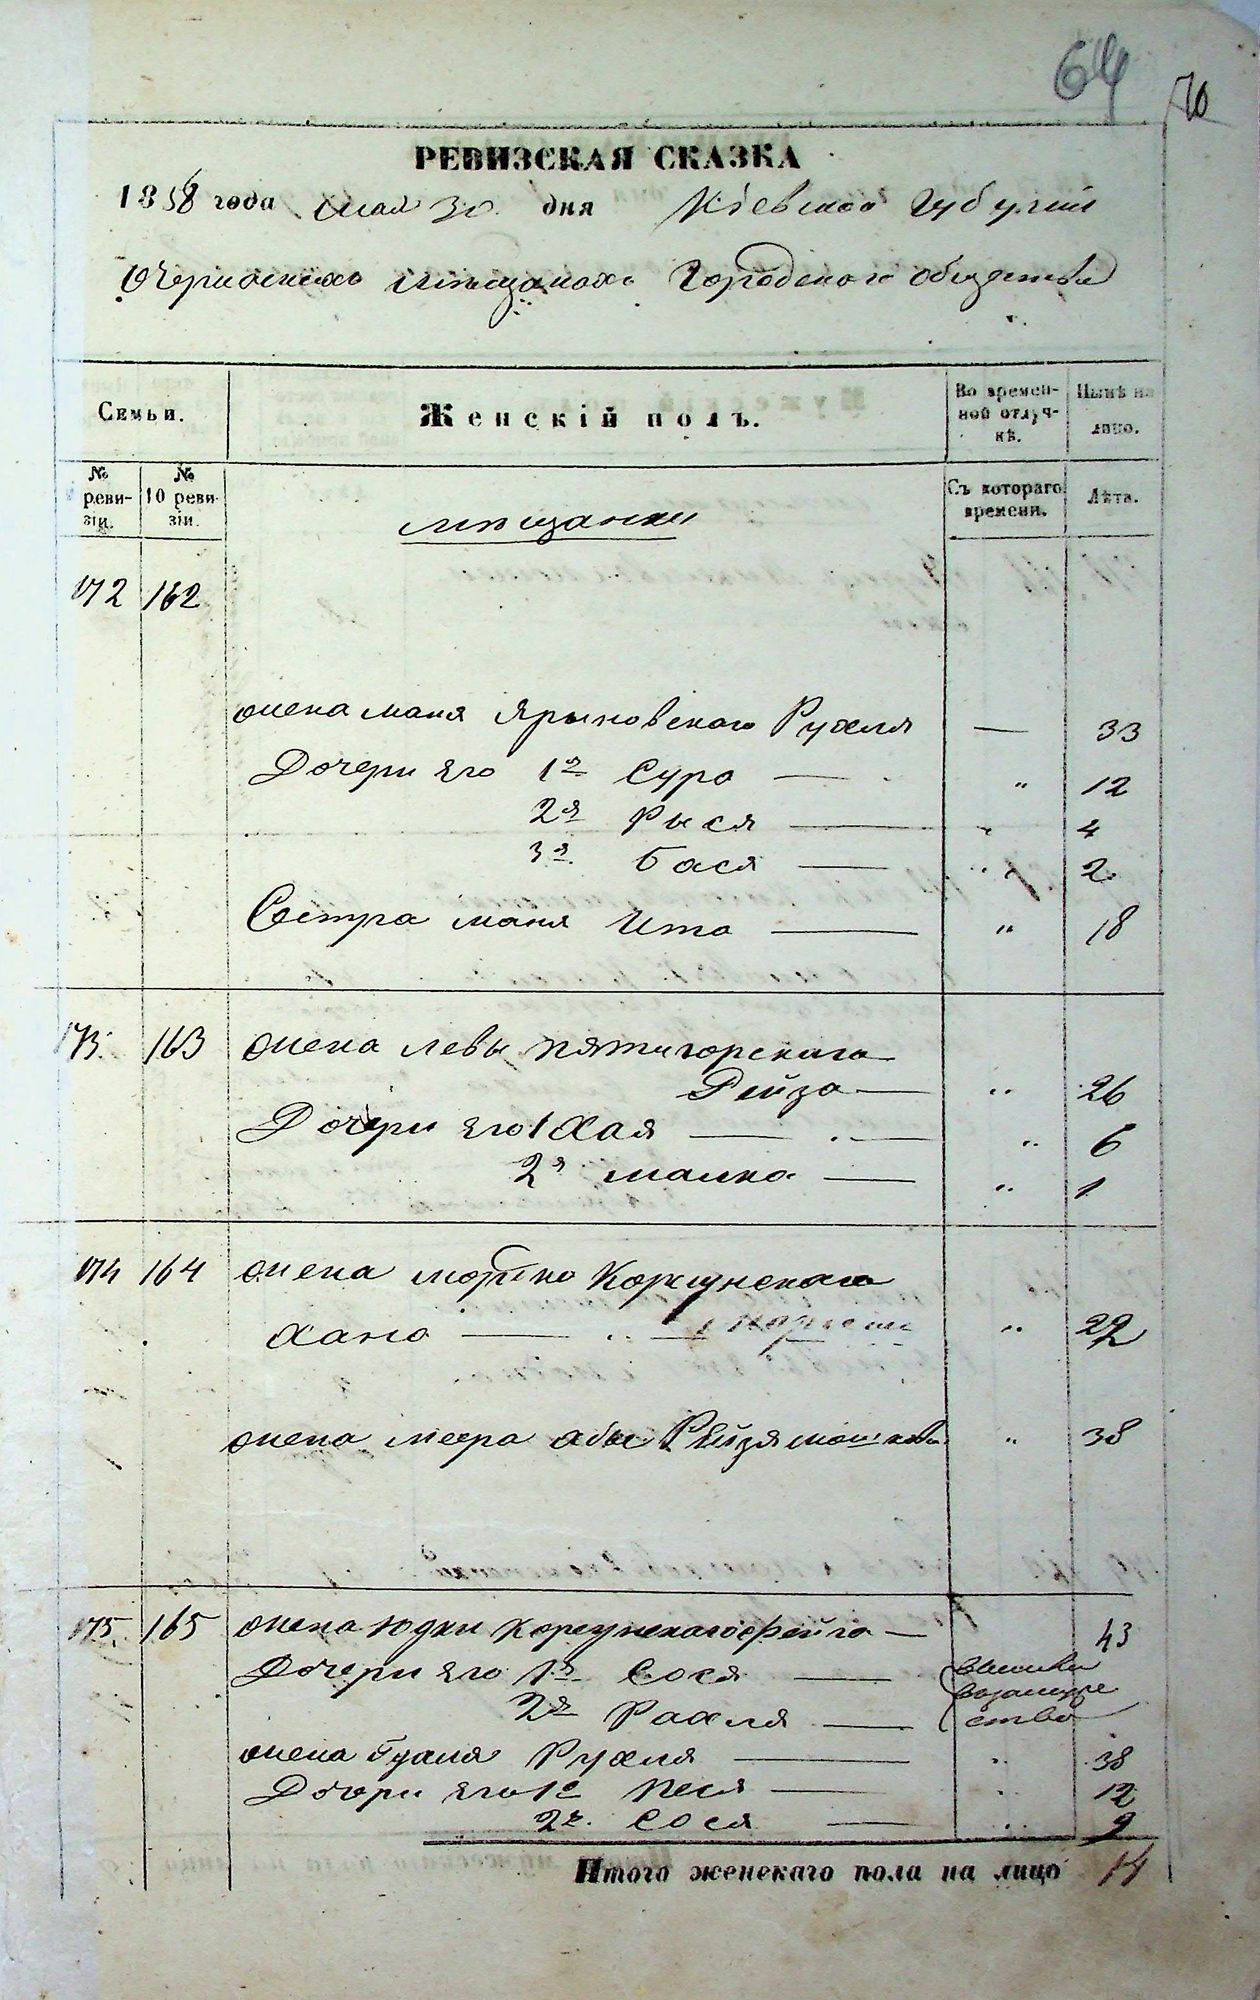 64
70
РЕВИЗСКАЯ СКАЗКА
1858 года мая 30 дня Кіевской Губерніи
О Черкаскихъ мѣщанахъ Городскаго общества
Семьи.
Женскій полъ.
Во времен-
ной отлуч-
кѣ.
Нынѣ на
лицо.
№
реви-
зіи.
№
10 реви-
зіи.
Съ котораго
времени.
Лѣта.
мѣщанки
172 162
жена Маня Ярыновскаго Рухля — 33
Дочери Его 1я Сура — " 12
2я Рыся — " 4
3я Бася — " 2
Сестра Маня Ита — " 18
173. 163 жена Левы Пятигорскаго
Рейза — " 26
Дочери Его 1 Хая — " 6
2я Малка — " 1
174 164 жена Мошка Корсунскаго
Хана — " 22
жена Меера Абы Рейзя Мошкова " 38
175. 165 жена Юдки Корсунскаго Фейга — 43
Дочери Его 1я Сося — вышли
2я Рахля — взамуже
ство
жена Рухля — " 38
Дочери Его 1я Песя — " 12
2я. Сося — " 9
Итого женскаго пола на лицо 14